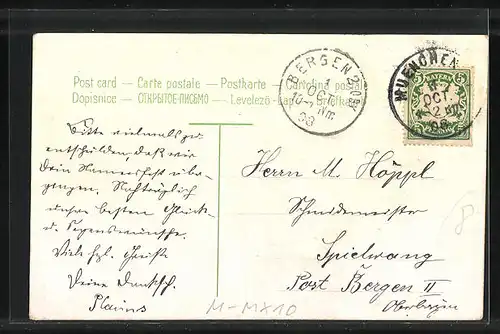 Post card — Carte postale — Postkarte — Cartolina postal
Dopisnice — ОТКРЫТОЕ ПИСЬМО — Levelező-Lap — Briefkaart
BERGEN 2. OBB
1 OCT
Nm.
MUENCHEN
OCT
2 Nm
BAYERN
5
Bitte vielmals zu
entschulden, daß wir
Dein Namensfest über-
gangen. Nachträglich
unsere besten Glück-
u. Segenswünsche.
Viele hzl. Grüße
Deine dankb.
Herrn M. Höppl
Schneidermeister
Spielwang
Post Bergen II
Oberbayern
8
M-MX10